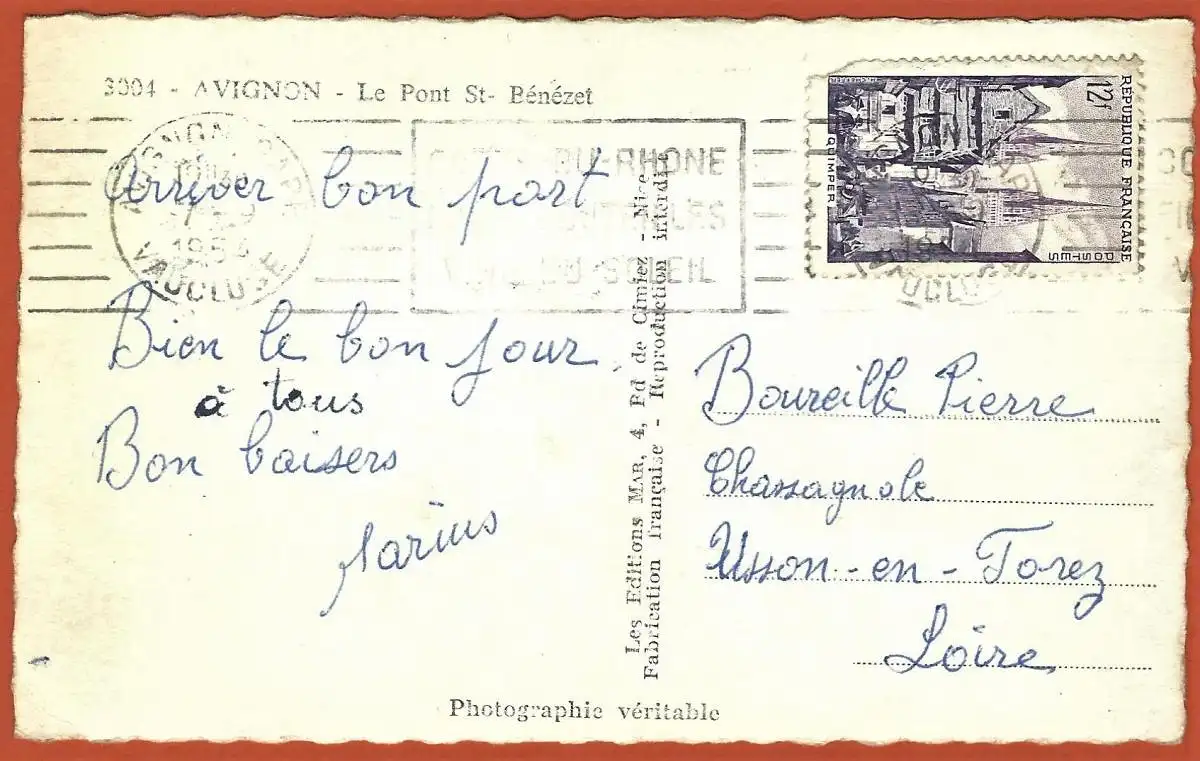 3004 - AVIGNON - Le Pont St- Bénézet
Arriver bon port
Bien le bon jour
à tous
Bon baisers
Marius
Photographie véritable
Les Editions MAR, 4, Bd de Cimiez - Nice
Fabrication française - Reproduction interdite
REPUBLIQUE FRANÇAISE
12f
POSTES
QUIMPER
AVIGNON
VAUCLUSE
DU-RHONE
DU-SOLEIL
Boureille Pierre
Chassagnole
Usson-en-Forez
Loire